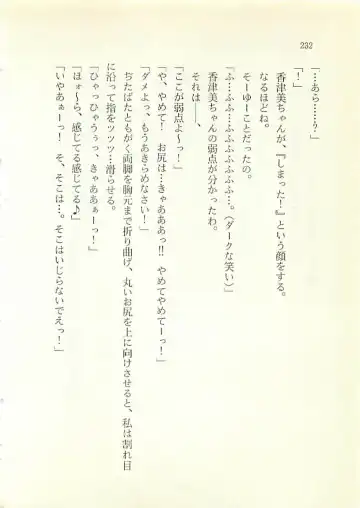 232
「…あら……?」
「!」
香津美ちゃんが、『しまった!』という顔をする。
なるほどね。
そーゆーことだったの。
『ふ…ふふ…ふふふふふふ…。(ダークな笑い)』
香津美ちゃんの弱点が分かったわ。
それは――、
「ここが弱点よ〜っ!」
「や、やめて! お尻は…きゃあああっ!! やめてやめてーっ!」
「ダメよっ、もうあきらめなさい!」
ぢたばたともがく両脚を胸元まで折り曲げ、丸いお尻を上に向けさせると、私は割れ目
に沿って指をツッツ…滑らせる。
「ひゃっひゃうぅっ、きゃああぁーっ!」
「ほぉ〜ら、感じてる感じてる♪」
「いやあぁーっ! そ、そこは…。そこはいじらないでえっ!」